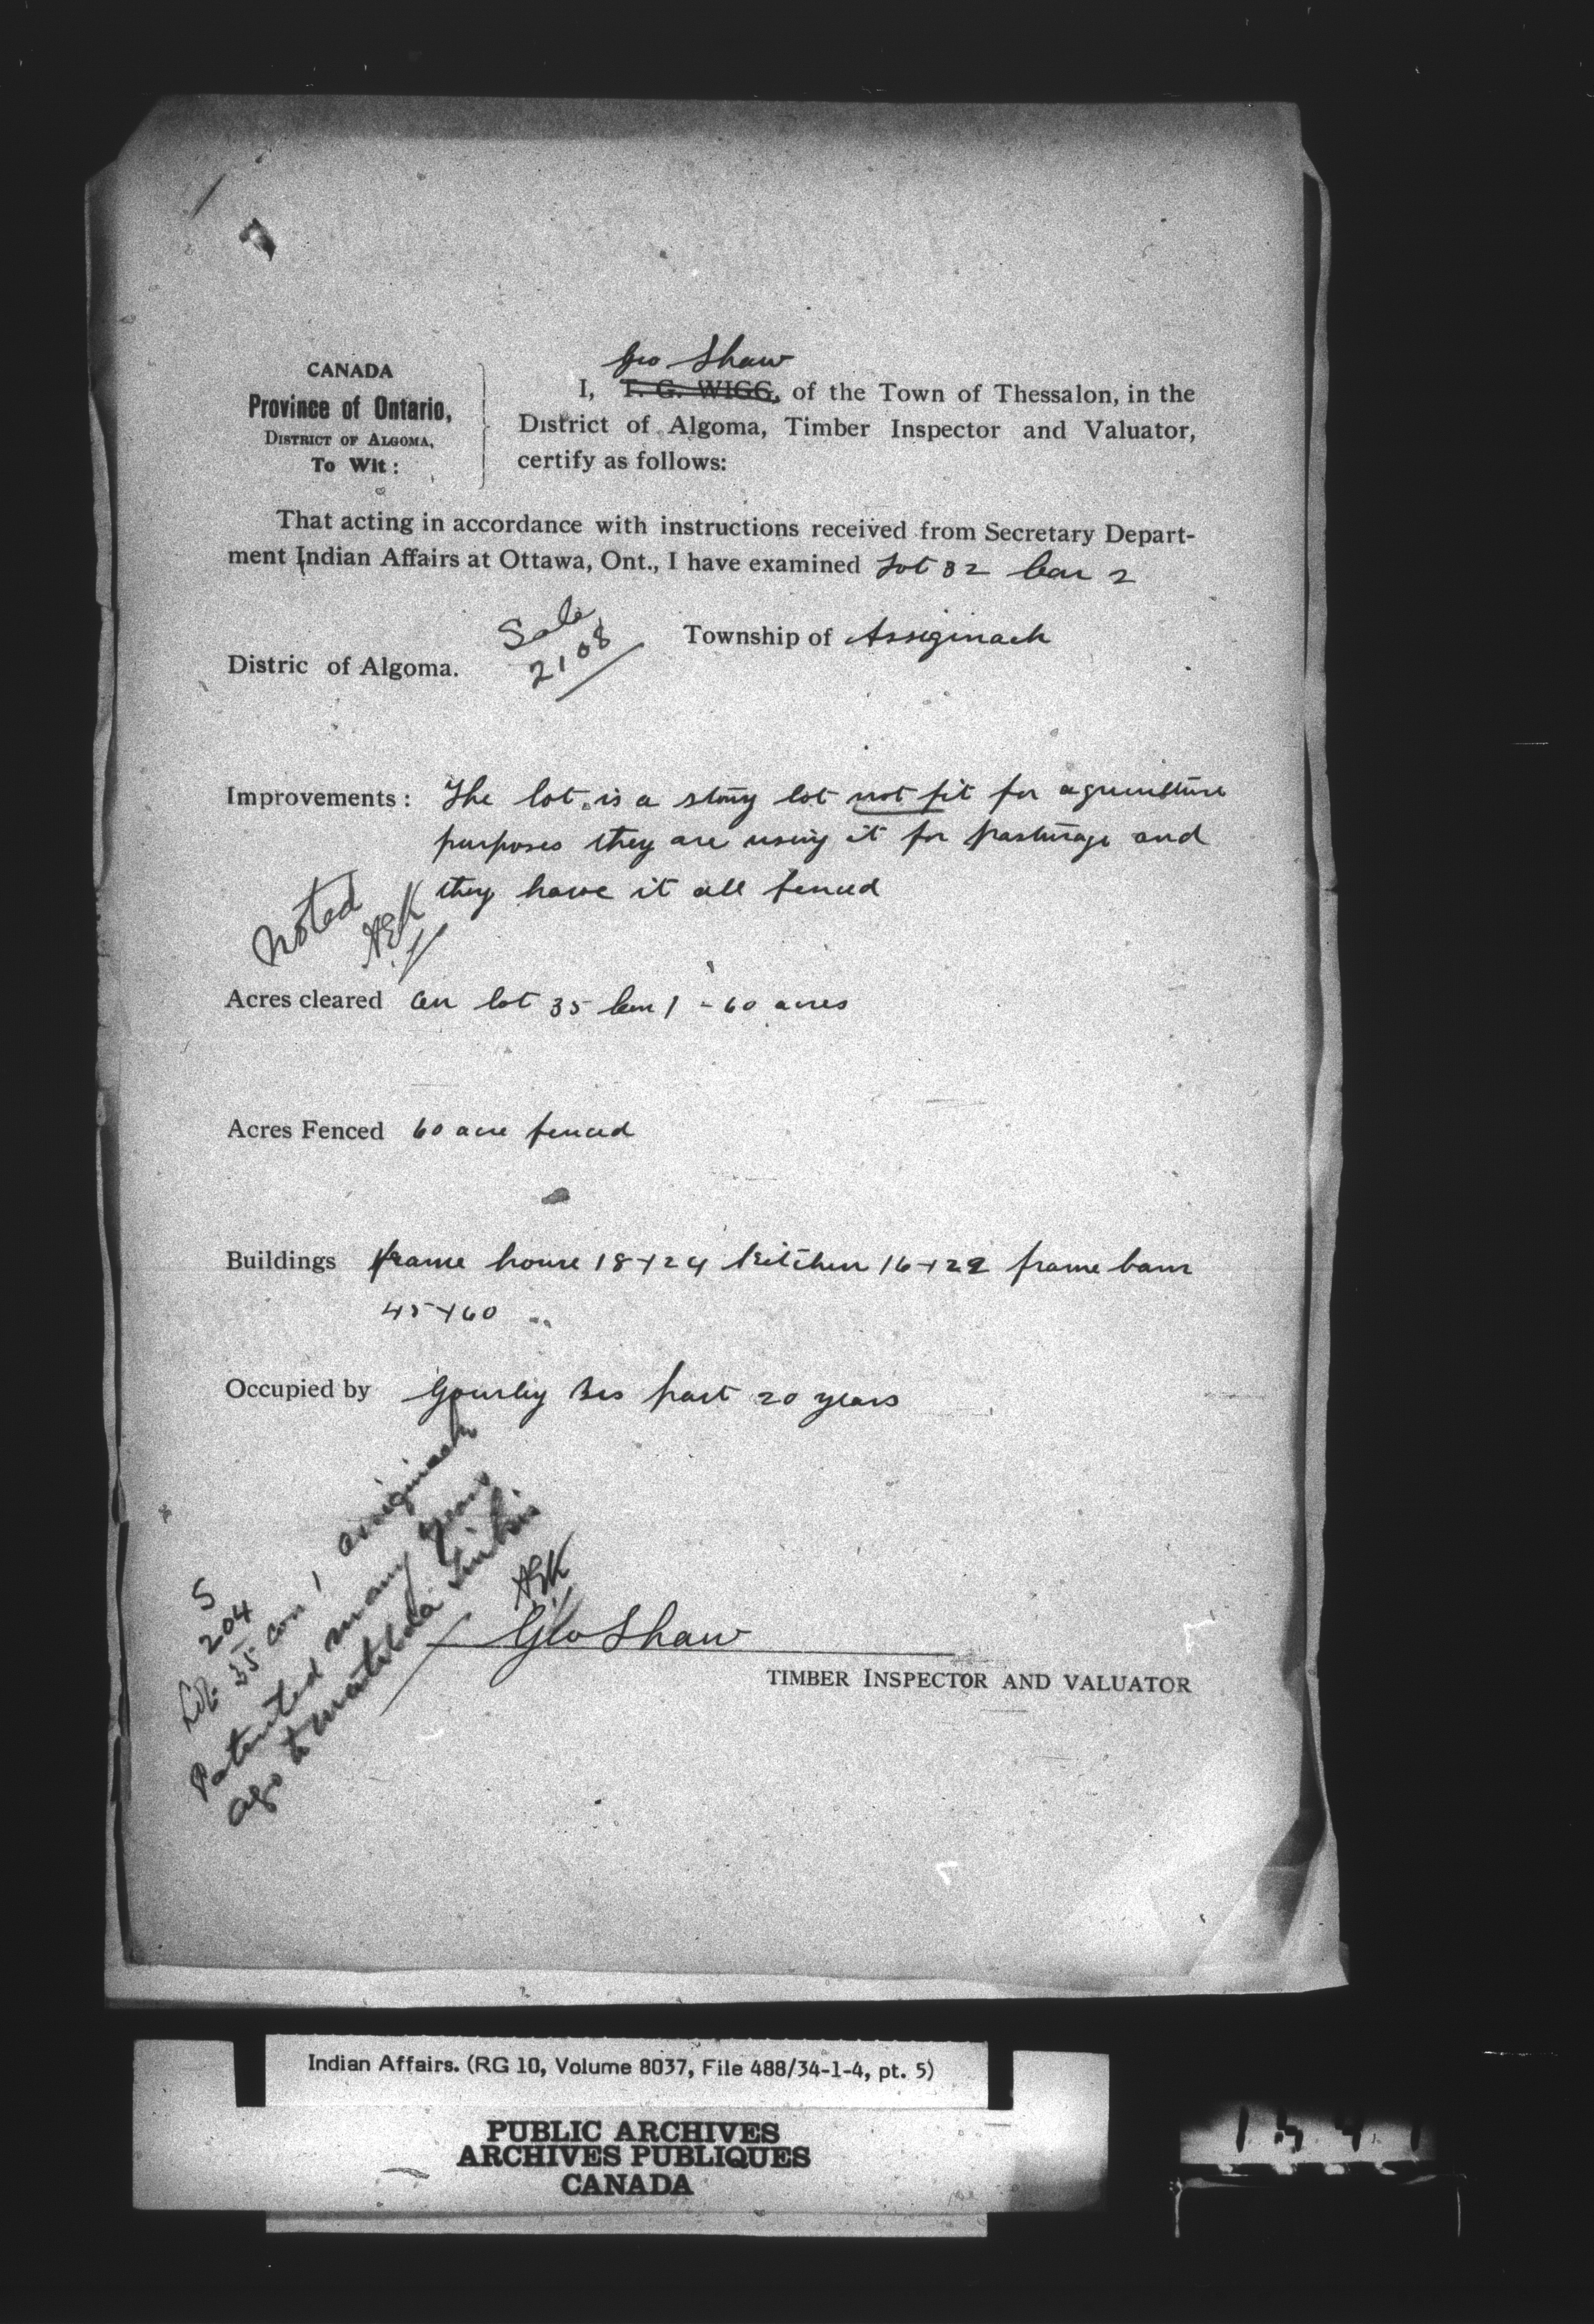 Geo Shaw
CANADA
Province of Ontario,
DISTRICT OF ALGOMA,
To Wit:
I, T. G. WIGG, of the Town of Thessalon, in the
District of Algoma, Timber Inspector and Valuator,
certify as follows:
That acting in accordance with instructions received from Secretary Depart-
ment Indian Affairs at Ottawa, Ont., I have examined Lot 32 Con 2
Sale
2108
Township of Assiginack
Distric of Algoma.
Improvements: The lot is a stony lot not fit for agriculture
purposes they are using it for pasturage and
they have it all fenced
Noted
AEK
Acres cleared on lot 35 Con 1 - 60 acres
Acres Fenced 60 acre fenced
Buildings frame house 18x24 kitchen 16x22 frame barn
45x60
Occupied by Gourley Bros past 20 years
S
204
Lot 35 con 1 assiginack
Patented many years
ago to Matilda
AEK
Geo Shaw
TIMBER INSPECTOR AND VALUATOR
Indian Affairs. (RG 10, Volume 8037, File 488/34-1-4, pt. 5)
PUBLIC ARCHIVES
ARCHIVES PUBLIQUES
CANADA